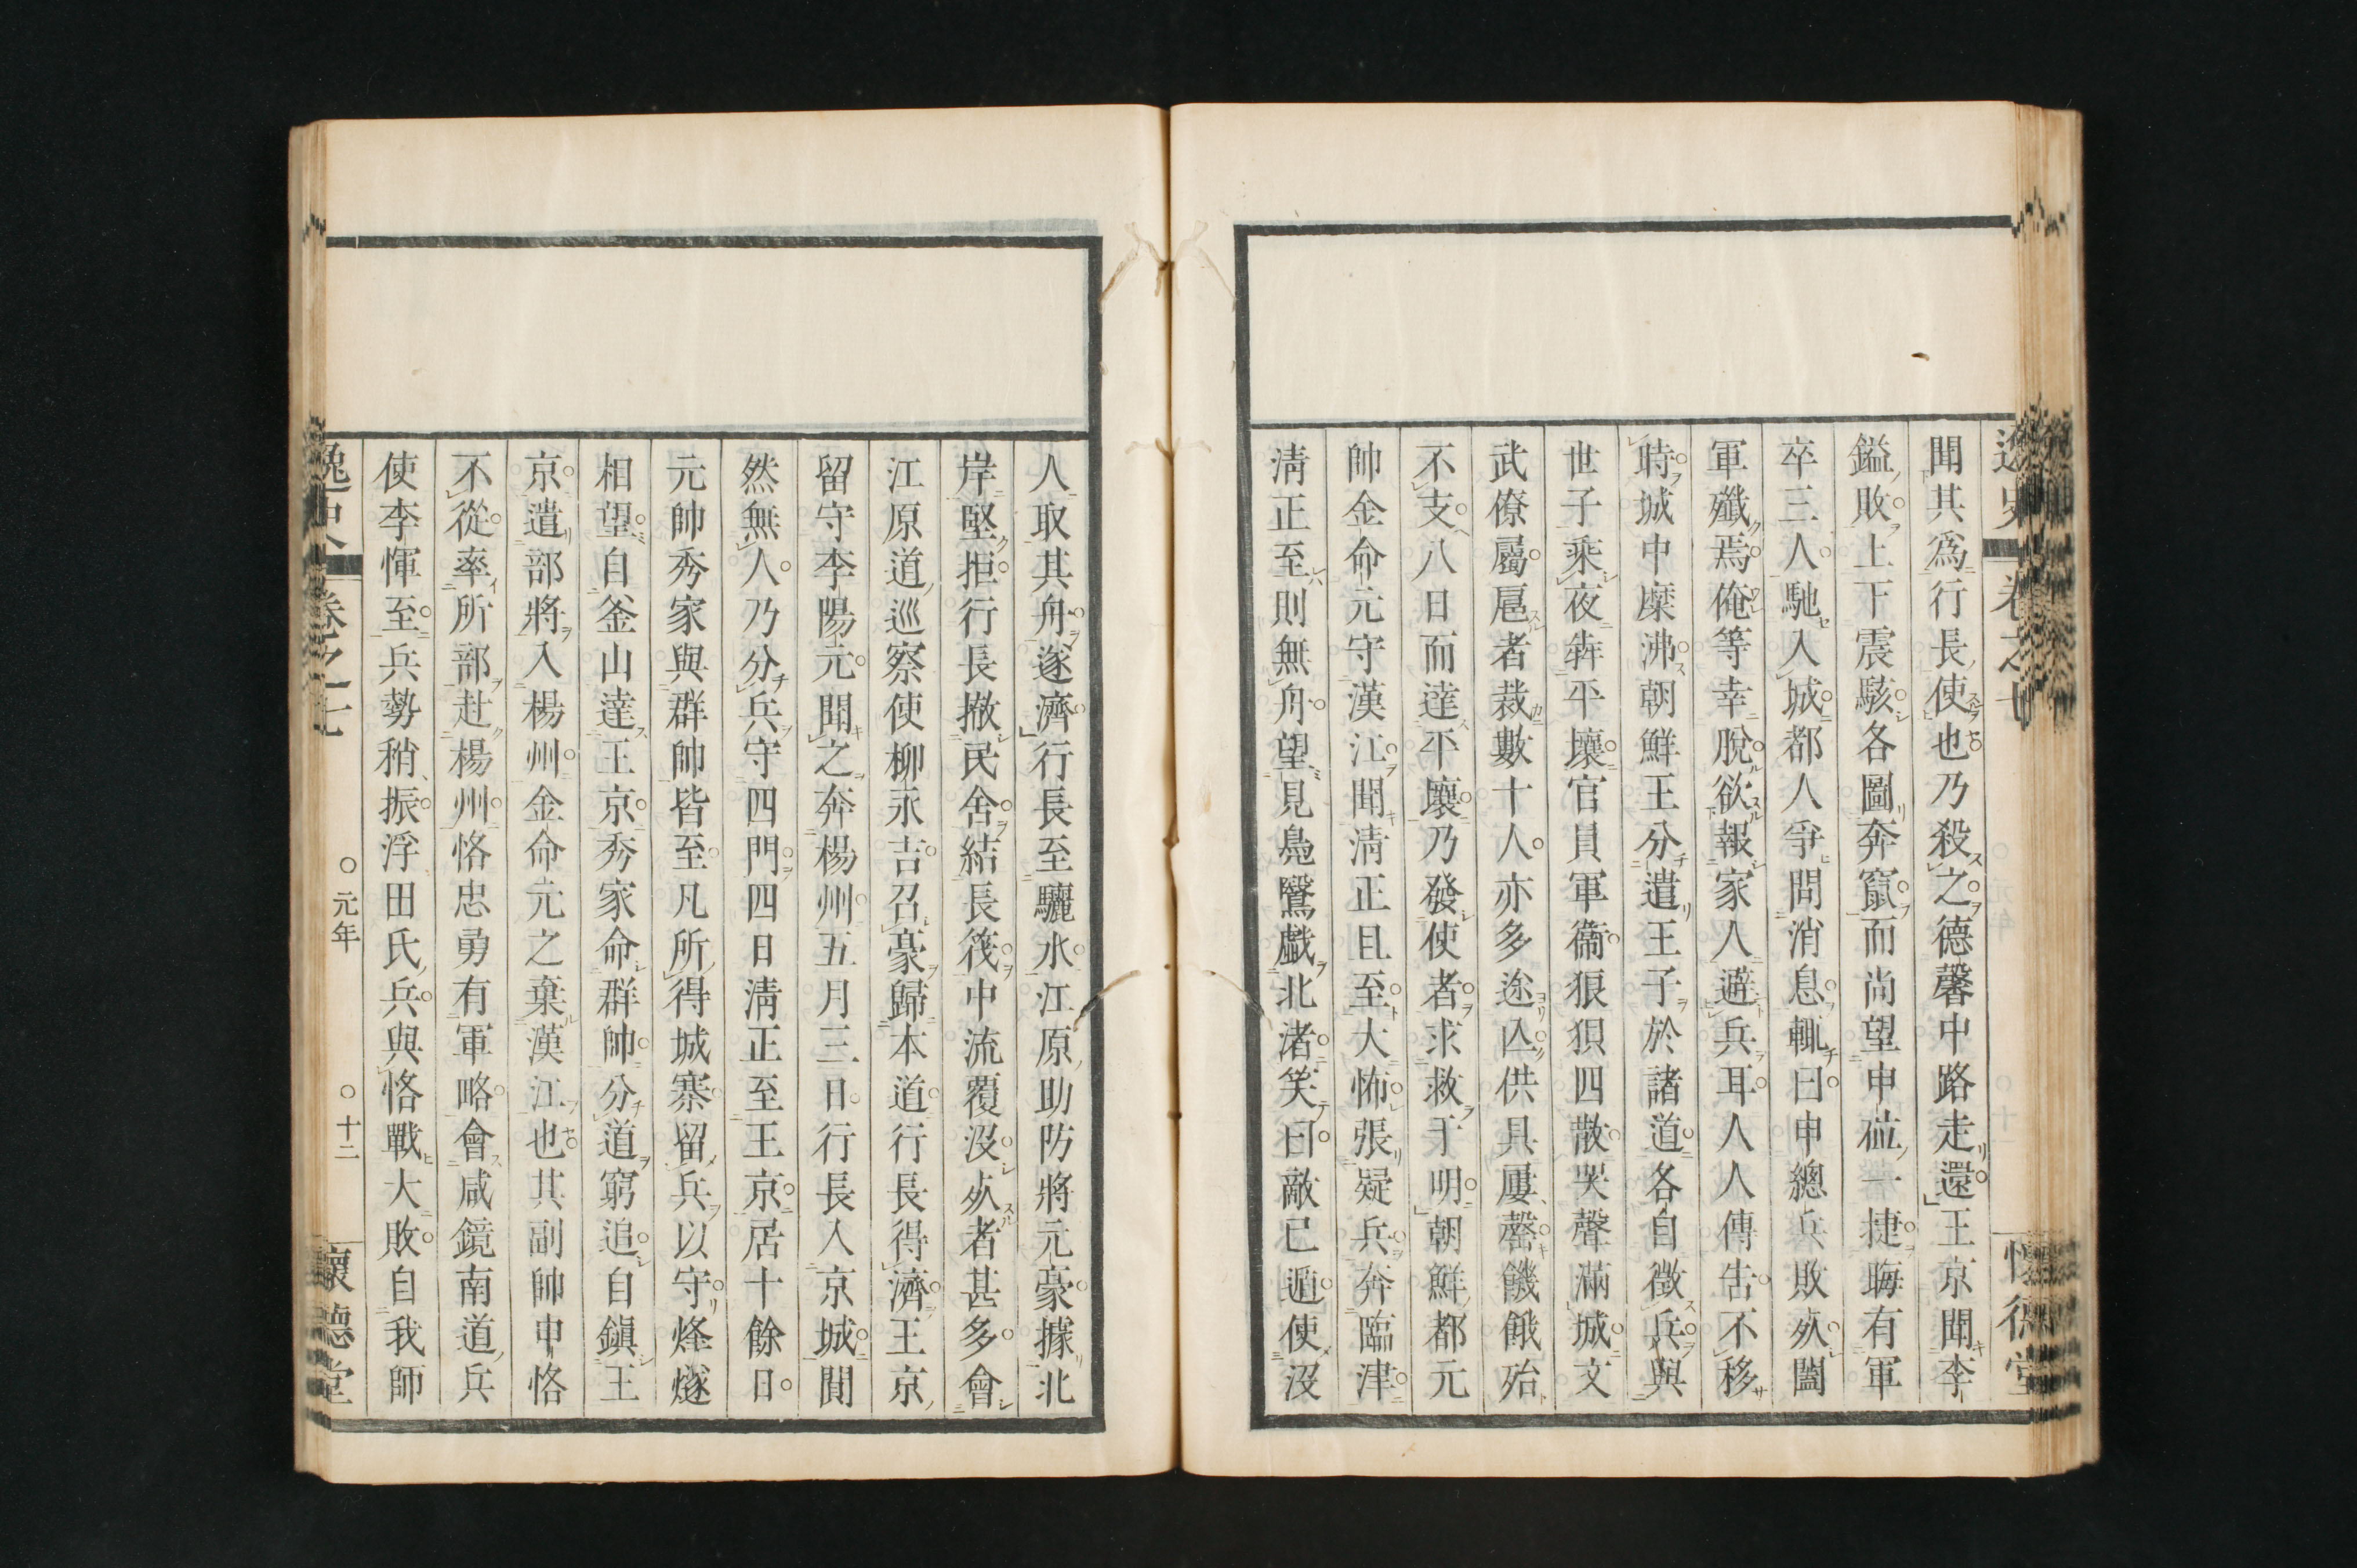 聞其爲行長使也乃殺之德馨中路走還王京聞李
鎰敗上下震駭各圖奔竄而尚望申砬一捷晦有軍
卒三人馳入城都人爭問消息輒曰申總兵敗死闔
軍殲焉俺等幸脫欲報家人避兵耳人人傳告不移
時城中糜沸朝鮮王分遣王子於諸道各自徵兵與
世子乘夜犇平壤官員軍衞狼狽四散哭聲滿城文
武僚屬扈者裁數十人亦多途亾供具屢罄饑餓殆
不支八日而達平壤乃發使者求救于明朝鮮都元
帥金命元守漢江聞淸正且至大怖張疑兵奔臨津
淸正至則無舟望見鳧鷖戲北渚笑曰敵已遁使沒
人取其舟遂濟行長至驪水江原助防將元豪據北
岸堅拒行長撤民舍結長筏中流覆沒死者甚多會
江原道巡察使柳永吉召豪歸本道行長得濟王京
留守李陽元聞之奔楊州五月三日行長入京城閴
然無人乃分兵守四門四日淸正至王京居十餘日
元帥秀家與群帥皆至凡所得城寨留兵以守烽燧
相望自釜山達王京秀家命群帥分道窮追自鎭王
京遣部將入楊州金命元之棄漢江也其副帥申恪
不從率所部赴楊州恪忠勇有軍略會咸鏡南道兵
使李惲至兵勢稍振浮田氏兵與恪戰大敗自我師
逸史 卷之七 ○元年 ○十二 懷德堂